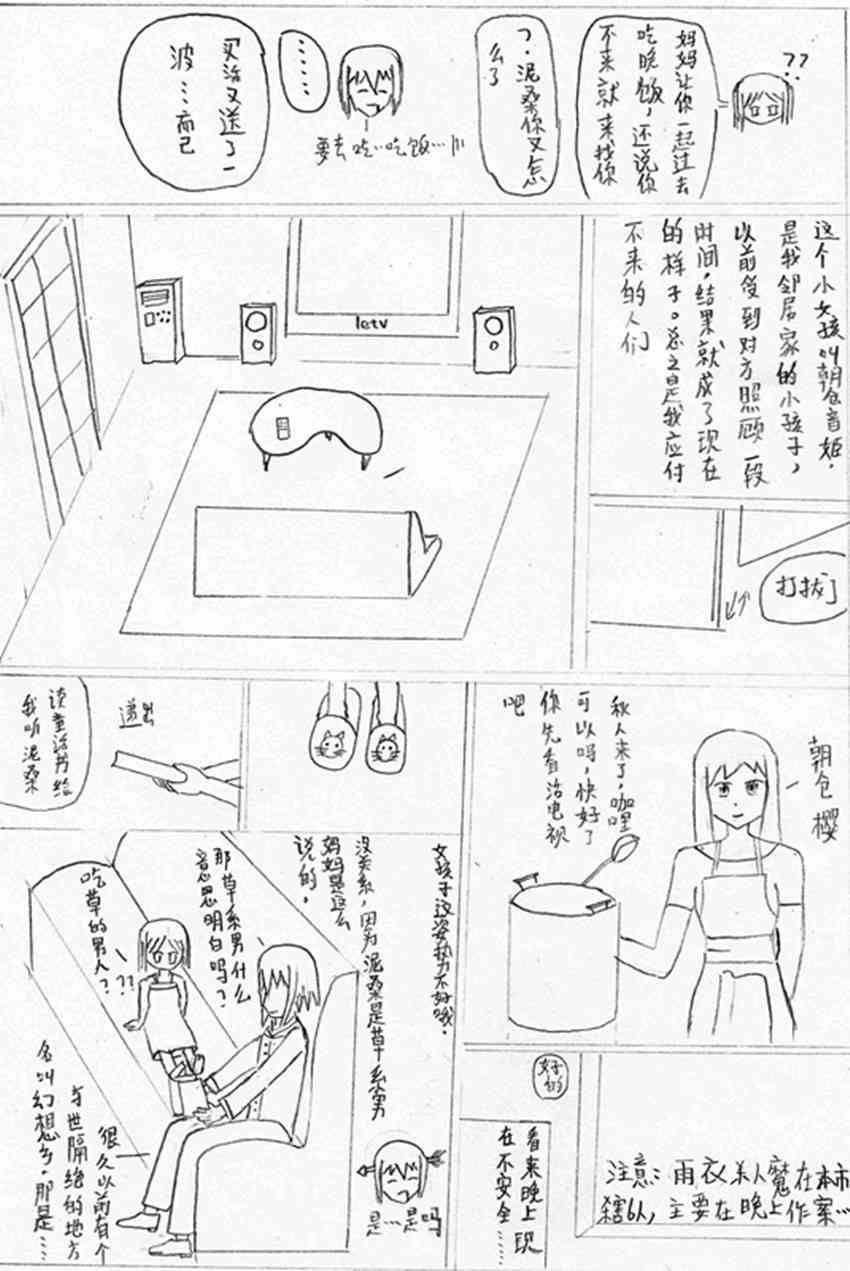 ??
妈妈让你一起过去
吃晚饭，还说你
不来就来找你
？．泥桑你又怎
么了
……
要去吃…吃饭…!!!
买治又送了一
波…而已
这个小女孩叫朝仓音姬．
是我邻居家的小孩子，
以前受到对方照顾一段
时间，结果就成了现在
的样子。总之是我应付
不来的人们
letv
打扰了
朝仓 樱
秋人来了，咖哩
可以吗，快好了
你先看洽电视
吧
递出
读童话书给
我听 泥桑
女孩子这姿势不好哦．
没关系，因为泥桑是草系男
妈妈是这么
说的．
那草系男什么
意思明白吗？
吃草的男人？
???
是…是吗
很久以前有个
与世隔绝的地方
名叫幻想乡．那是……
注意：雨衣杀人魔在本市
杀害6人，主要在晚上作案…
好的
看来晚上现
在不安全……